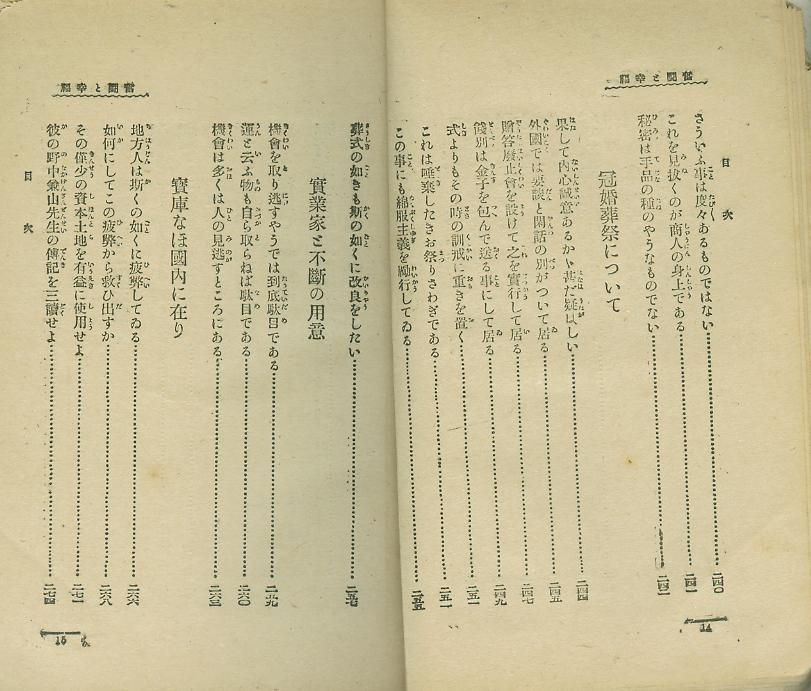 奮鬪と幸福
目次
さういふ事は度々あるものではない……二四〇
これを見拔くのが商人の身上である……二四一
秘密は手品の種のやうなものでない……二四二
冠婚葬祭について
果して内心誠意あるか甚だ疑はしい……二四四
外國では要談と閑話の別がついて居る……二四五
贈答廢止會を設けて之を實行して居る……二四七
餞別は金子を包んで送る事にして居る……二四九
式よりもその時の訓戒に重きを置く……二五一
これは唾棄したきお祭りさわぎである……二五二
この事にも綿服主義を勵行してゐる……二五五
14
奮鬪と幸福
葬式の如きも斯の如くに改良をしたい……二五七
實業家と不斷の用意
機會を取り逃すやうでは到底駄目である……二五九
運と云ふ物も自ら取らねば駄目である……二六〇
機會は多くは人の見逃すところにある……二六三
寶庫なほ國内に在り
地方人は斯くの如くに疲弊してゐる……二六六
如何にしてこの疲弊から救ひ出すか……二六八
その僅少の資本土地を有益に使用せよ……二七一
彼の野中兼山先生の傳記を三讀せよ……二七四
目次
15